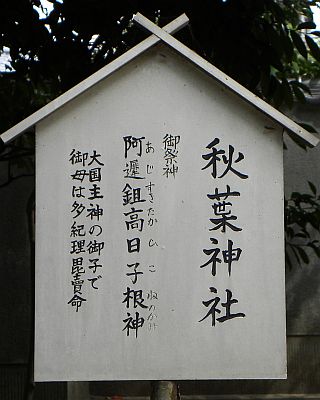 秋葉神社
御祭神
あじすきたかひこねのかみ
阿遲鉏高日子根神
大国主神の御子で
御母は多紀理毘賣命